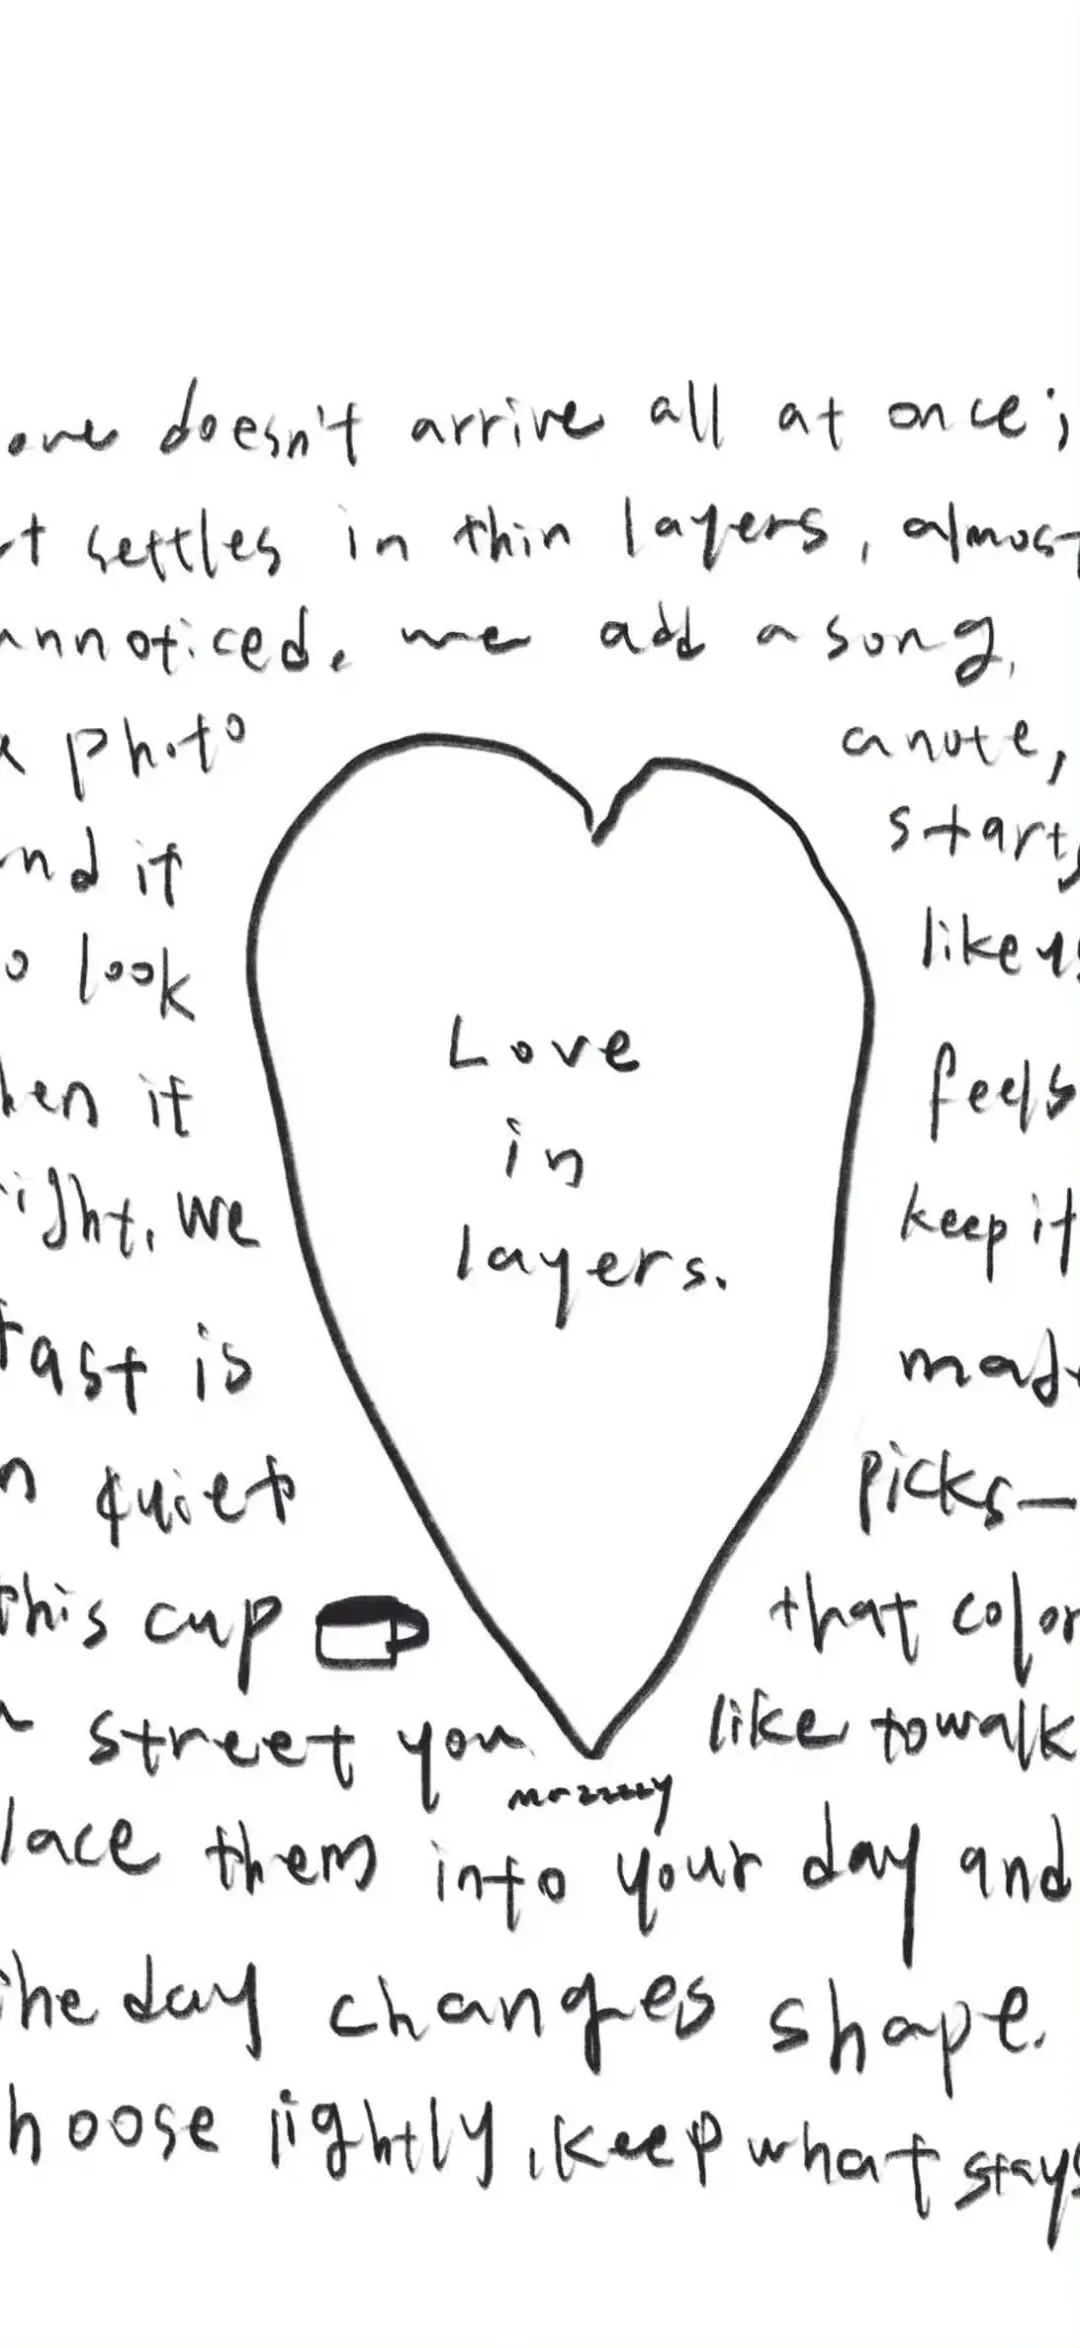 ove doesn't arrive all at once;
t settles in thin layers, almost
unnoticed. we add a song,
a photo a note,
nd it starts
o look like us
hen it feels
right, we keep it
Tast is made
n quiet picks—
this cup that color
street you like to walk
lace them into your day and
the day changes shape.
hoose lightly, keep what stays
Love
in
layers.